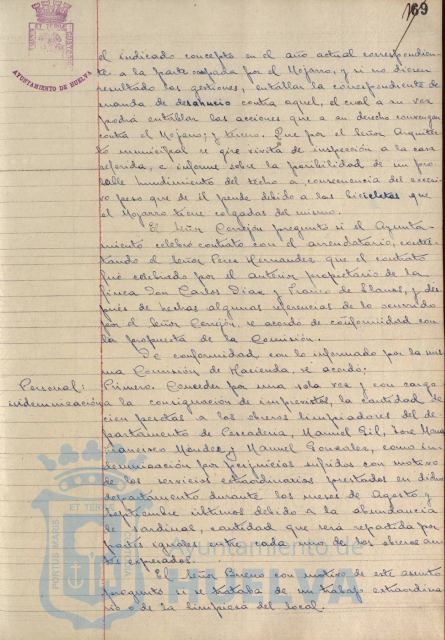 169
AYUNTAMIENTO DE HUELVA
el indicado concepto en el año actual correspondien-
te a la parte ocupada por el Mojarro, y si no dieren
resultado las gestiones, entablar la correspondiente de-
manda de desahucio contra aquel, el cual a su vez
podrá entablar las acciones que a su derecho convengan
contra el Mojarro; y tercero. Que por el Señor Arquitec-
to municipal se gire visita de inspección a la casa
referida, e informe sobre la posibilidad de un pro-
bable hundimiento del techo a consecuencia del excesi-
vo peso que de él pende debido a las bicicletas que
el Mojarro tiene colgadas del mismo.
El Señor Corejón preguntó si el Ayunta-
miento celebró contrato con el arrendatario, contes-
tando el Señor Perez Hernandez que el contrato
fué celebrado por el anterior propietario de la
finca Don Carlos Diaz y Franco de Llanos, y des-
pués de hechas algunas referencias de lo ocurrido
por el Señor Corejón, se acordó de conformidad con
la propuesta de la Comisión.
De conformidad con lo informado por la mis-
ma Comisión de Hacienda, se acordó:
Personal:
indemnización
Primero. Conceder por una sola vez y con cargo
a la consignación de imprevistos, la cantidad de
cien pesetas a los obreros limpiadores del de-
partamento de Pescadería, Manuel Gil, José Mora
Francisco Mendez y Manuel Gonzalez, como in-
demnización por perjuicios sufridos con motivo
de los servicios extraordinarios prestados en dicho
departamento durante los meses de Agosto y
Septiembre últimos debido a la abundancia
de sardinas, cantidad que será repartida por
partes iguales entre cada uno de los obreros an-
tes expresados.
El Señor Moreno con motivo de este asunto
preguntó si se trataba de un trabajo extraordina-
rio o de la limpieza del local.
PORTUS MARIS
ET TERRAE
Ayuntamiento de
HUELVA